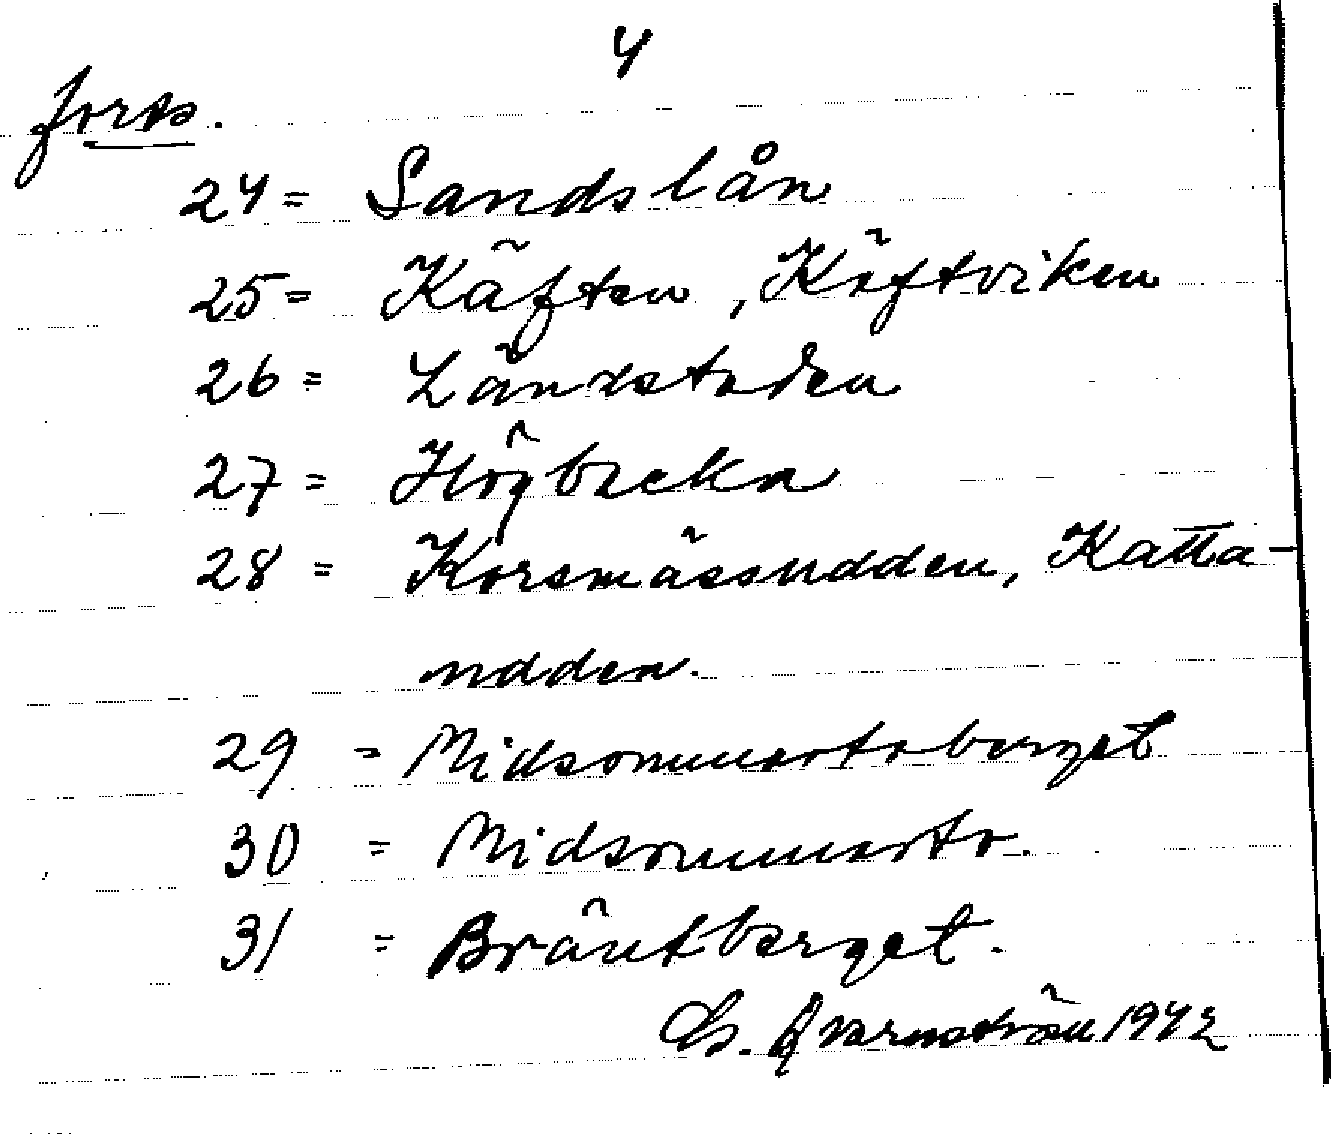 4
forts.
24 = Sandslån
25 = Käften, Käftviken
26 = Ländstaden
27 = Högbacka
28 = Korsmässudden, Katta-
udden.
29 = Midsommartoberget
30 = Midsommarto.
31 = Bräntberget.
Qvarnström 1942